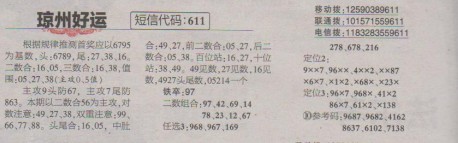 琼州好运
短信代码:611
移动拨:12590389611
联通拨:101571559611
电信拨:1183283559611
根据规律推测首奖应以6795
为基数,头:6789,尾:27,38,16。
二数合:16,05,三数合:16,38,值
围:05,27,38(主攻0,5值)
主攻9头防67,主攻7尾防
863。本期以二数合56为主攻,对
数注意:49,27,38,双重注意:99,
66,77,88。头尾合:16,05,中肚
合:49,27,前二数合:05,27,后二
数合:05,38,百位站:16,27,十位
站:38,49,49见数,27见数,16见
数,4927头尾数,05214一个
铁卒:97
二数组合:97,42,69,14
78,23,12,67
任选3:968,967,169
278,678,216
定位2:
9××7,96××,4××2,××87
×6×7,×1×2,×68×,×23×
定位3:96×7,968×,41×2
86×7,61×2,×138
⑩参考码:9687,9682,4162
8637,6102,7138